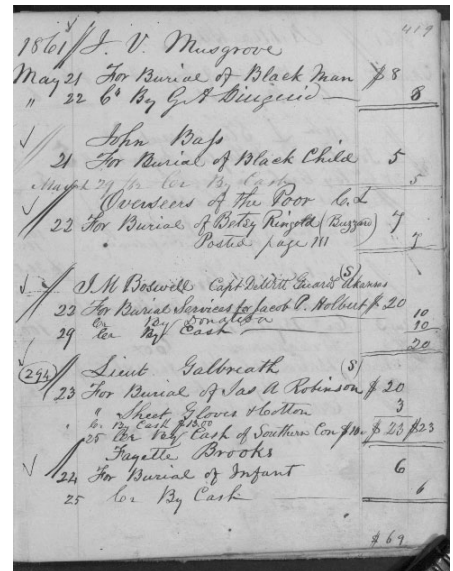 419
1861 J. V. Musgrove
May 21 For Burial of Black Man $8
" 22 Cr By G A 8
John Bass
21 For Burial of Black Child 5
29 Cr By Cash 5
Overseers of the Poor C.L
22 For Burial of Betsy Ringold (Buzzard) 7
Posted page 111 7
J M Boswell Capt DeWitt Guards (S) Arkansas
22 For Burial Services for Jacob P. Holbert $20
Cr By Donation 10
29 Cr By Cash 10
20
294 Lieut Galbreath (S)
23 For Burial of Jas A Robinson $20
" Sheet Gloves & Cotton 3
" Cr By Cash $13.00
25 Cr By Cash of Southern Con $10 $23 $23
Fayette Brooks
24 For Burial of Infant 6
25 Cr By Cash 6
$69